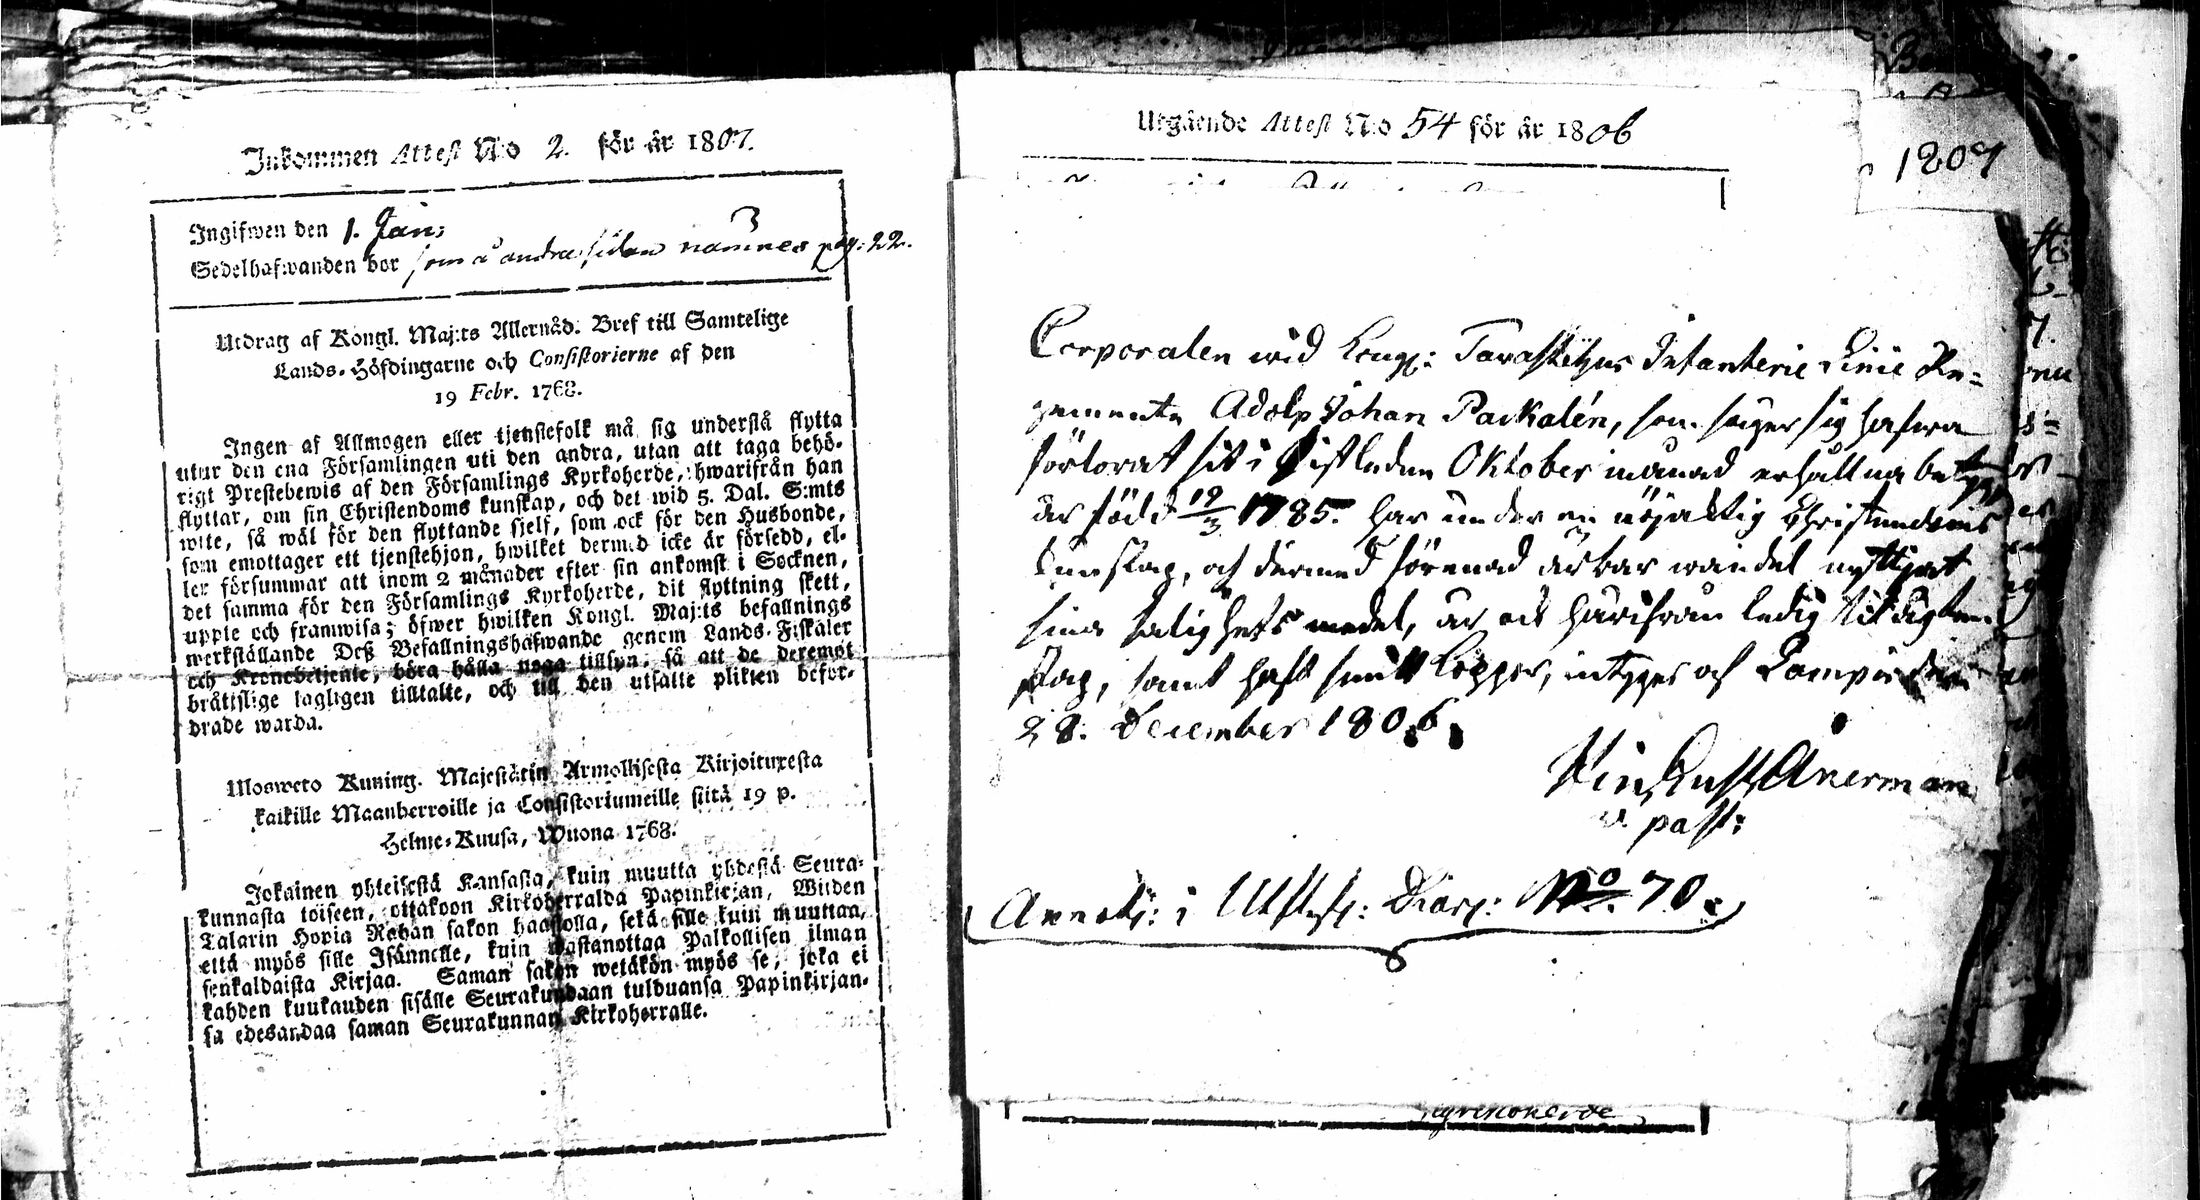 Inkommen Attest N:o 2. för år 1807.
Ingifwen den 1. Jan:
Sedelhafwanden bor som å andra sidan nämnes pag: 22.
Utdrag af Kongl. Maj:ts Allernåd. Bref till Samtelige
Lands-Höfdingarne och Consistorierne af den
19 Febr. 1768.
Ingen af Allmogen eller tjenstefolk må sig understå flytta
utur den ena Församlingen uti den andra, utan att taga behö-
rigt Prestebewis af den Församlings Kyrkoherde, hwarifrån han
flyttar, om sin Christendoms kunskap, och det wid 5. Dal. S:mts
wite, så wäl för den flyttande sjelf, som ock för den Husbonde,
som emottager ett tjenstehjon, hwilket dermed icke är försedd, el-
ler försummar att inom 2 månader efter sin ankomst i Socknen,
det samma för den Församlings Kyrkoherde, dit flyttning skett,
uppte och framwisa; öfwer hwilken Kongl. Maj:ts befallnings
werkställande Deß Befallningshafwande genom Lands-Fiskaler
och Kronobetjente, böra hålla noga tillsyn, så att de deremot
bråttslige lagligen tilltalte, och till den utsatte plikten befor-
drade warda.
Ulosweto Kuning. Majestätin Armollisesta Kirjoituxesta
kaikille Maanherroille ja Consistoriumeille siitä 19 p.
Helme-Kuusa, Wuona 1768.
Jokainen yhteisestä Kansasta, kuin muutta yhdestä Seura-
kunnasta toiseen, ottakoon Kirkoherralda Papinkirjan, Wiiden
Talarin Hopia Rahan sakon haastolla, sekä sille kuin muuttaa,
että myös sille Isännelle, kuin wastanottaa Palkollisen ilman
senkaldaista Kirjaa. Saman sakon wetäkön myös se, joka ei
kahden kuukauden sisälle Seurakundaan tulduansa Papinkirjan-
sa edesandaa saman Seurakunnan Kirkoherralle.
Utgående Attest N:o 54 för år 1806
1807
Corporalen wid Kongl: Tavastehus Infanterie Linie Re-
gemente Adolp Johan Packalén, som säger sig hafwa
förlorat sit i sistleden Oktober månad erhållna betyg,
är född 19/3 1785. har under en nöjaktig Christendoms
kunskap, och dermed förenad ärbar wandel nyttjat
sina salighets medel, är ock härifrån ledig til ägten-
skap, samt haft smitt koppor, intyges af Kampis den
28. December 1806.
Åkerman
v. past:
Annot: i Utflytn: Diar: No. 70.